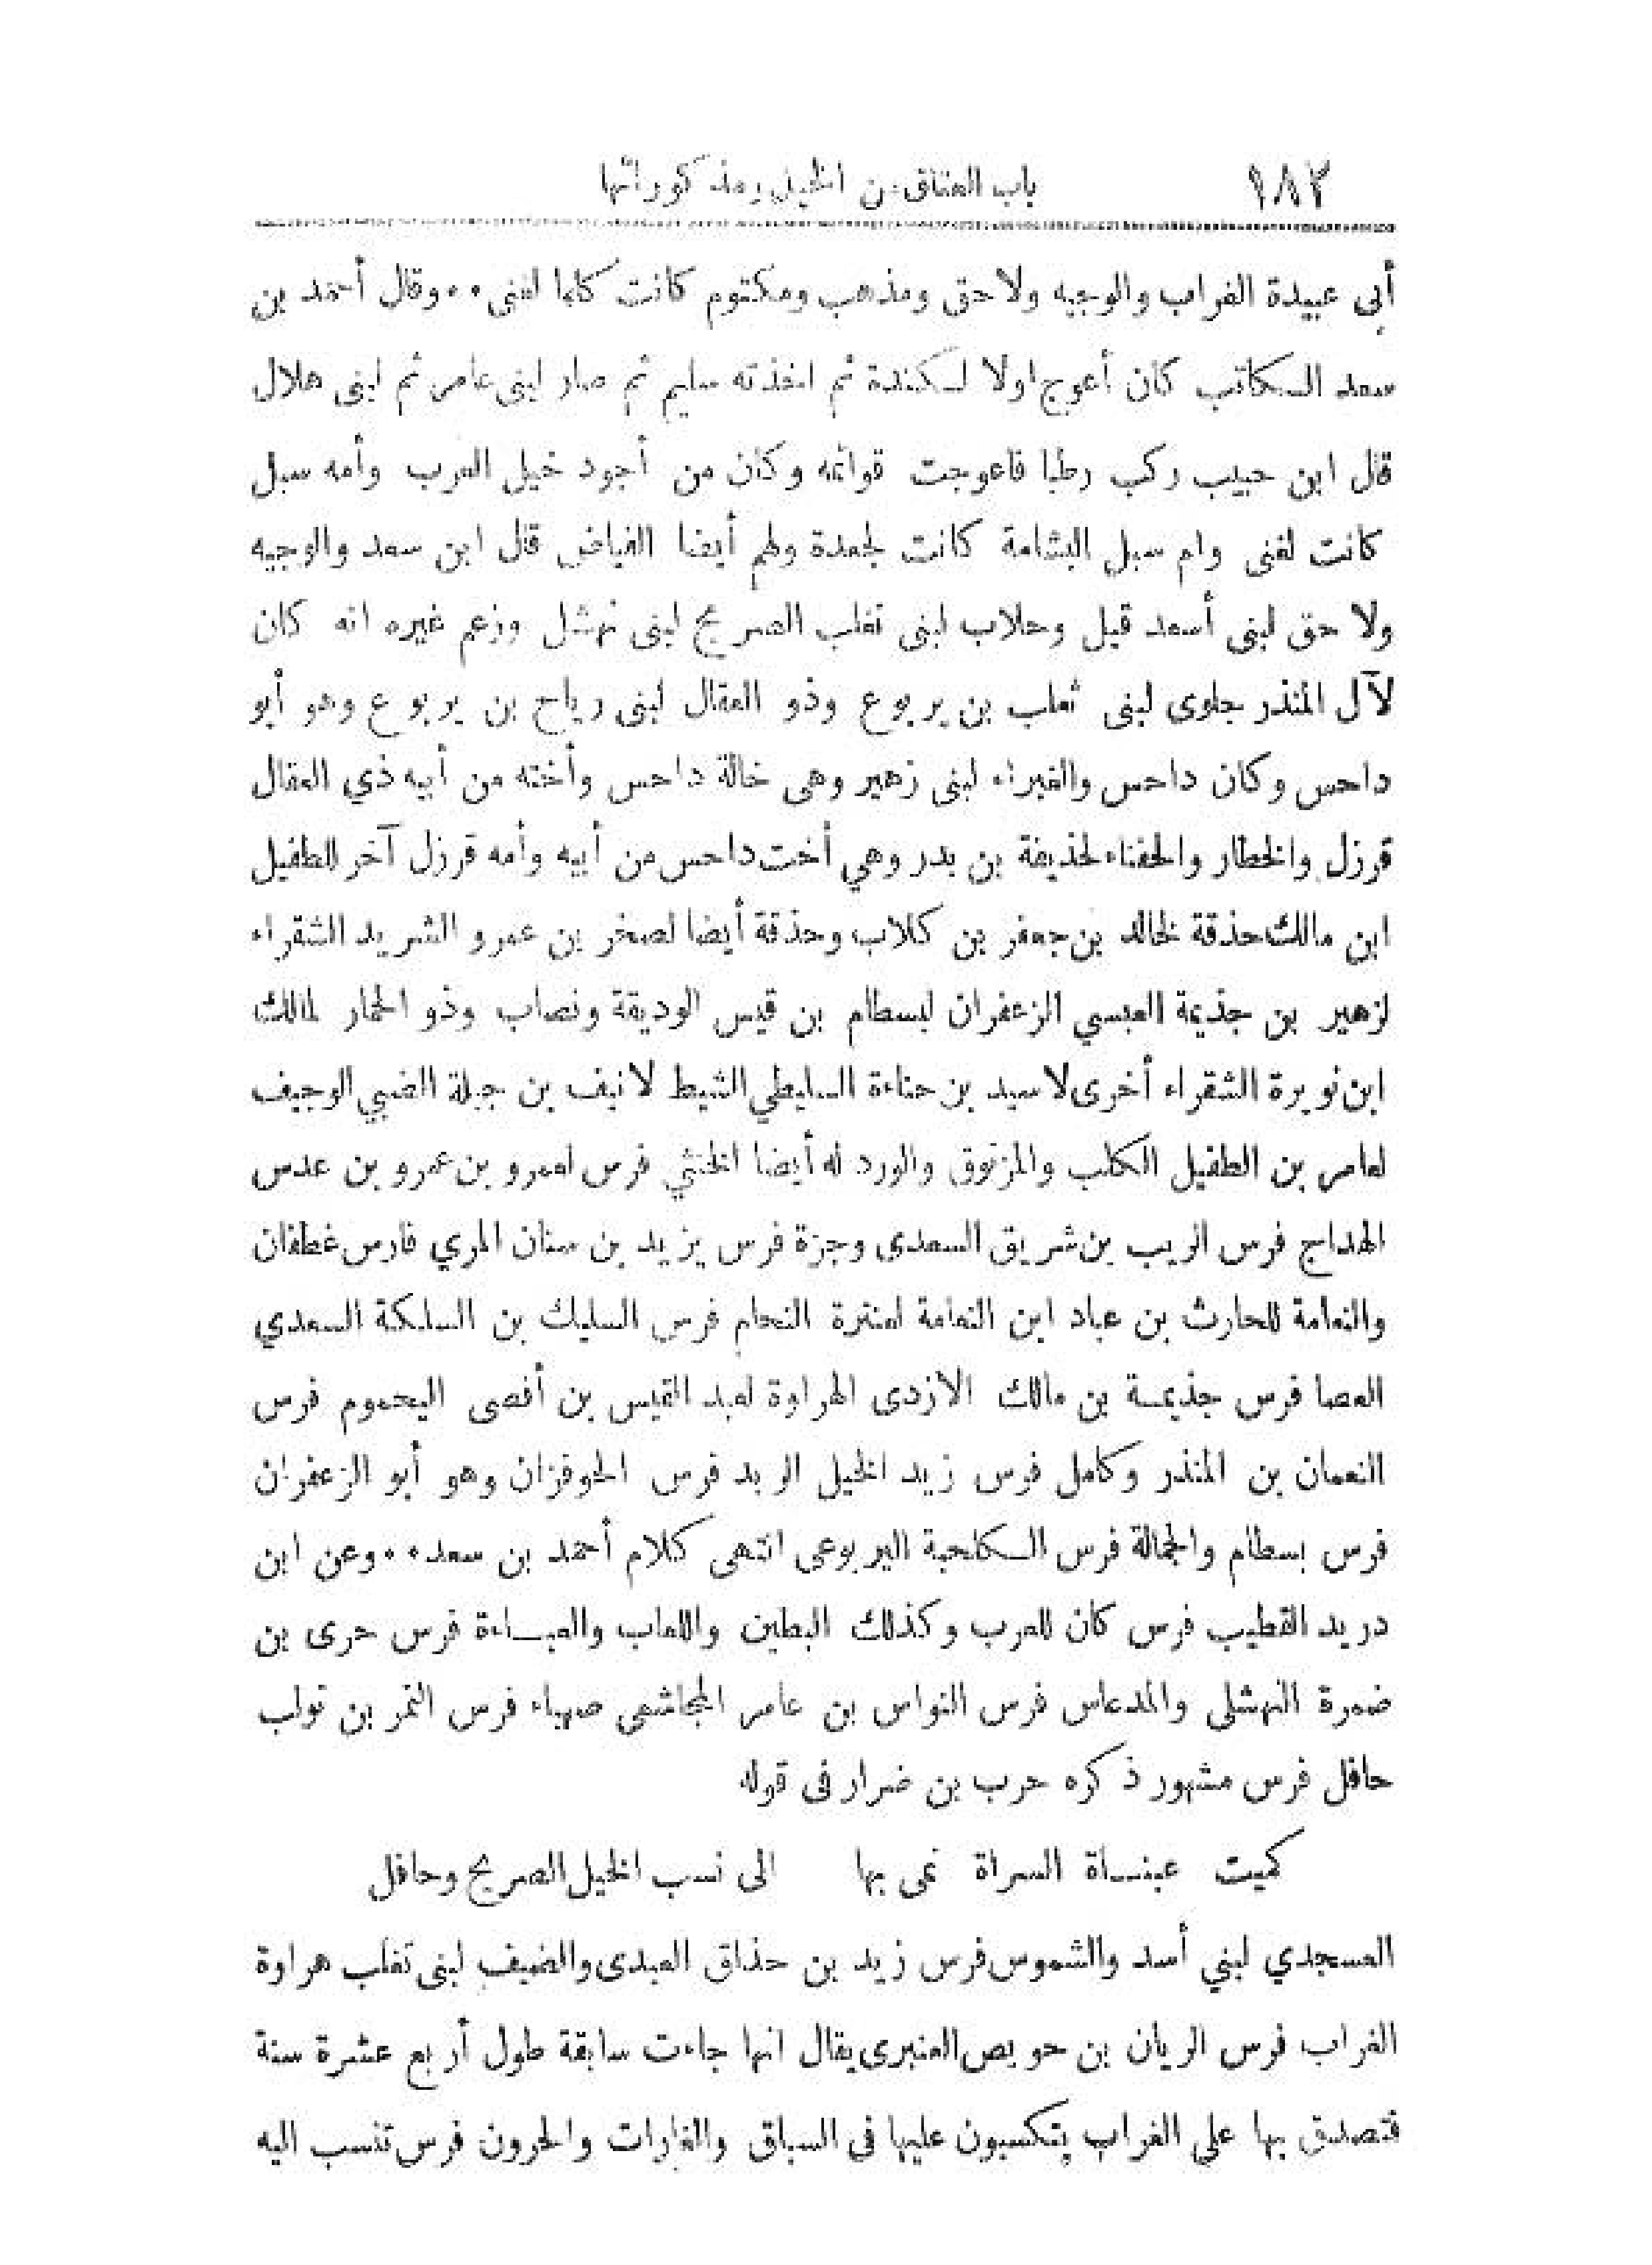 ١٨٢ باب العتاق من الخيل ومذكوراتها
أبى عبيدة الغراب والوجيه ولاحق ومذهب ومكتوم كانت كلها لغنى ٠٠ وقال أحمد بن
سعد الكاتب كان أعوج اولا لكندة ثم اخذته سليم ثم صار لبنى عامر ثم لبنى هلال
قال ابن حبيب ركب رطبا فاعوجت قوائمه وكان من أجود خيل العرب وأمه سبل
كانت لغنى وام سبل البشامة كانت لجعدة ولهم أيضا الفياض قال ابن سعد والوجيه
ولا حق لبنى أسعد قيل وحلاب لبنى تغلب الصريح لبنى نهشل وزعم غيره انه كان
لآل المنذر جلوى لبنى ثعلب بن يربوع وذو العقال لبنى رياح بن يربوع وهو أبو
داحس وكان داحس والغبراء لبنى زهير وهى خالة داحس وأخته من أبيه ذي العقال
قرزل والخطار والحفناء لحذيفة بن بدر وهي أخت داحس من أبيه وأمه قرزل آخر للطفيل
ابن مالك حذقة لخالد بن جعفر بن كلاب وحذقة أيضا لصخر بن عمرو الشريد الشقراء
لزهير بن جذيمة العبسي الزعفران لبسطام بن قيس الوديقة ونصاب وذو الخمار لمالك
ابن نويرة الشقراء أخرى لاسيد بن حناءة السليطي الشيط لانيف بن جبلة الضبي الوجيف
لعامر بن الطفيل الكلب والمزنوق والورد له أيضا الخنثي فرس لعمرو بن عمرو بن عدس
الهداج فرس الريب بن شريق السعدى وجزة فرس يزيد بن سنان المري فارس غطفان
والنعامة للحارث بن عباد ابن النعامة لعنترة النحام فرس السليك بن السلكة السعدي
العصا فرس جذيمة بن مالك الازدى الهراوة لعبد القيس بن أفصى اليحموم فرس
النعمان بن المنذر وكامل فرس زيد الخيل الربد فرس الحوفزان وهو أبو الزعفران
فرس بسطام والجمالة فرس الكلحبة اليربوعى انتهى كلام أحمد بن سعد ٠٠ وعن ابن
دريد القطيب فرس كان للعرب وكذلك البطين واللعاب والعباءة فرس حرى بن
ضمرة النهشلى والمدعاس فرس النواس بن عامر المجاشعى صهباء فرس النمر بن تولب
حافل فرس مشهور ذكره حرب بن ضرار فى قوله
كميت عبنــأة السراة نمى بها الى نسب الخيل الصريح وحافل
العسجدي لبني أسد والشموس فرس زيد بن حذاق العبدى والضيف لبنى تغلب هراوة
الغراب فرس الريان بن حويص العنبرى يقال انها جاءت سابقة طول أربع عشرة سنة
فتصدق بها على الغراب يتكسبون عليها فى السباق والغارات والحرون فرس تنسب اليه